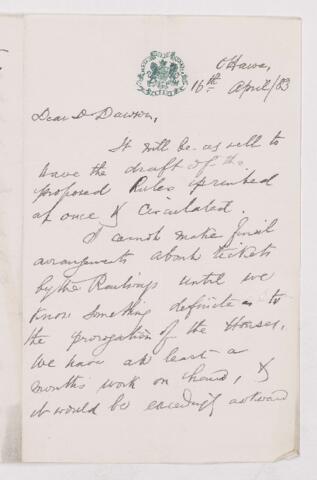 Ottawa,
16th April/83
Dear Dr Dawson,
It will be as well to
have the draft of the
proposed Rules printed
at once & circulated.
I cannot make final
arrangements about tickets
by the Railways until we
know something definite as to
the prorogation of the Houses.
We have at least a
months work on hand, &
it would be exceedingly awkward